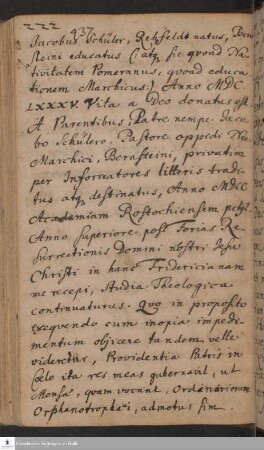 222
237
Jacobus Schüler, Rehfeldt natus, Bern
steini educatus (: atq. sic quoad Na
tivitatem Pomeranus, quoad educa
tionem Marchicus:) Anno MDC
LXXXV. Vita a Deo donatus est
A Parentibus, Patre nempe Jaco
bo Schülero, Pastore oppidi Neo
Marchici, Bernsteini, privatim
per Informatores litteris tradi
tus atq. destinatus, Anno MDCC
Academiam Rostochiensem petij.
Anno superiore post Ferias Re
surrectionis Domini nostri Jesu
Christi in hanc Fridericianam
me recepi, studia Theologica
continuaturus. Quo in proposito
exequendo cum inopia impedi
mentum objicere tandem velle
videretur, Providentia Patris in
Coelo ita res meas gubernavit, ut
Mensae, quam vocant, Ordinariorum
Orphanotrophei, admotus sim.